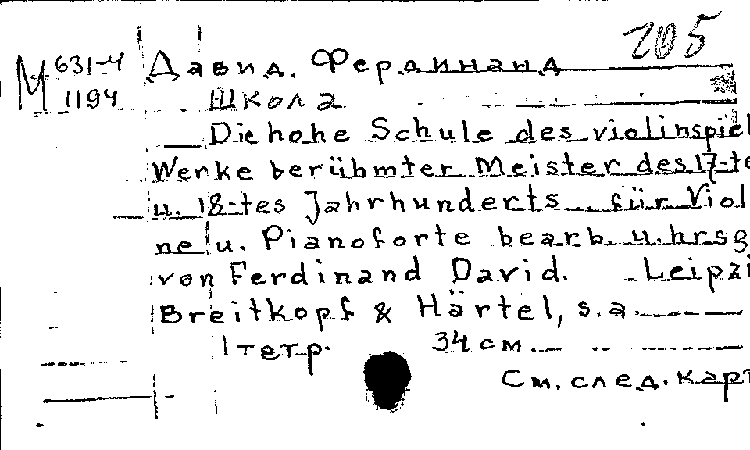 205
М 631-4
1194
Давид, Фердинанд
Школа
Die hohe Schule des violinspiel
Werke berühmter Meister des 17-te
u. 18-tes Jahrhunderts für Viol
ne u. Pianoforte bearb. u. hrsg
von Ferdinand David. Leipzi
Breitkopf & Härtel, s.a.
1 тетр. 34 см.
См. след. карт